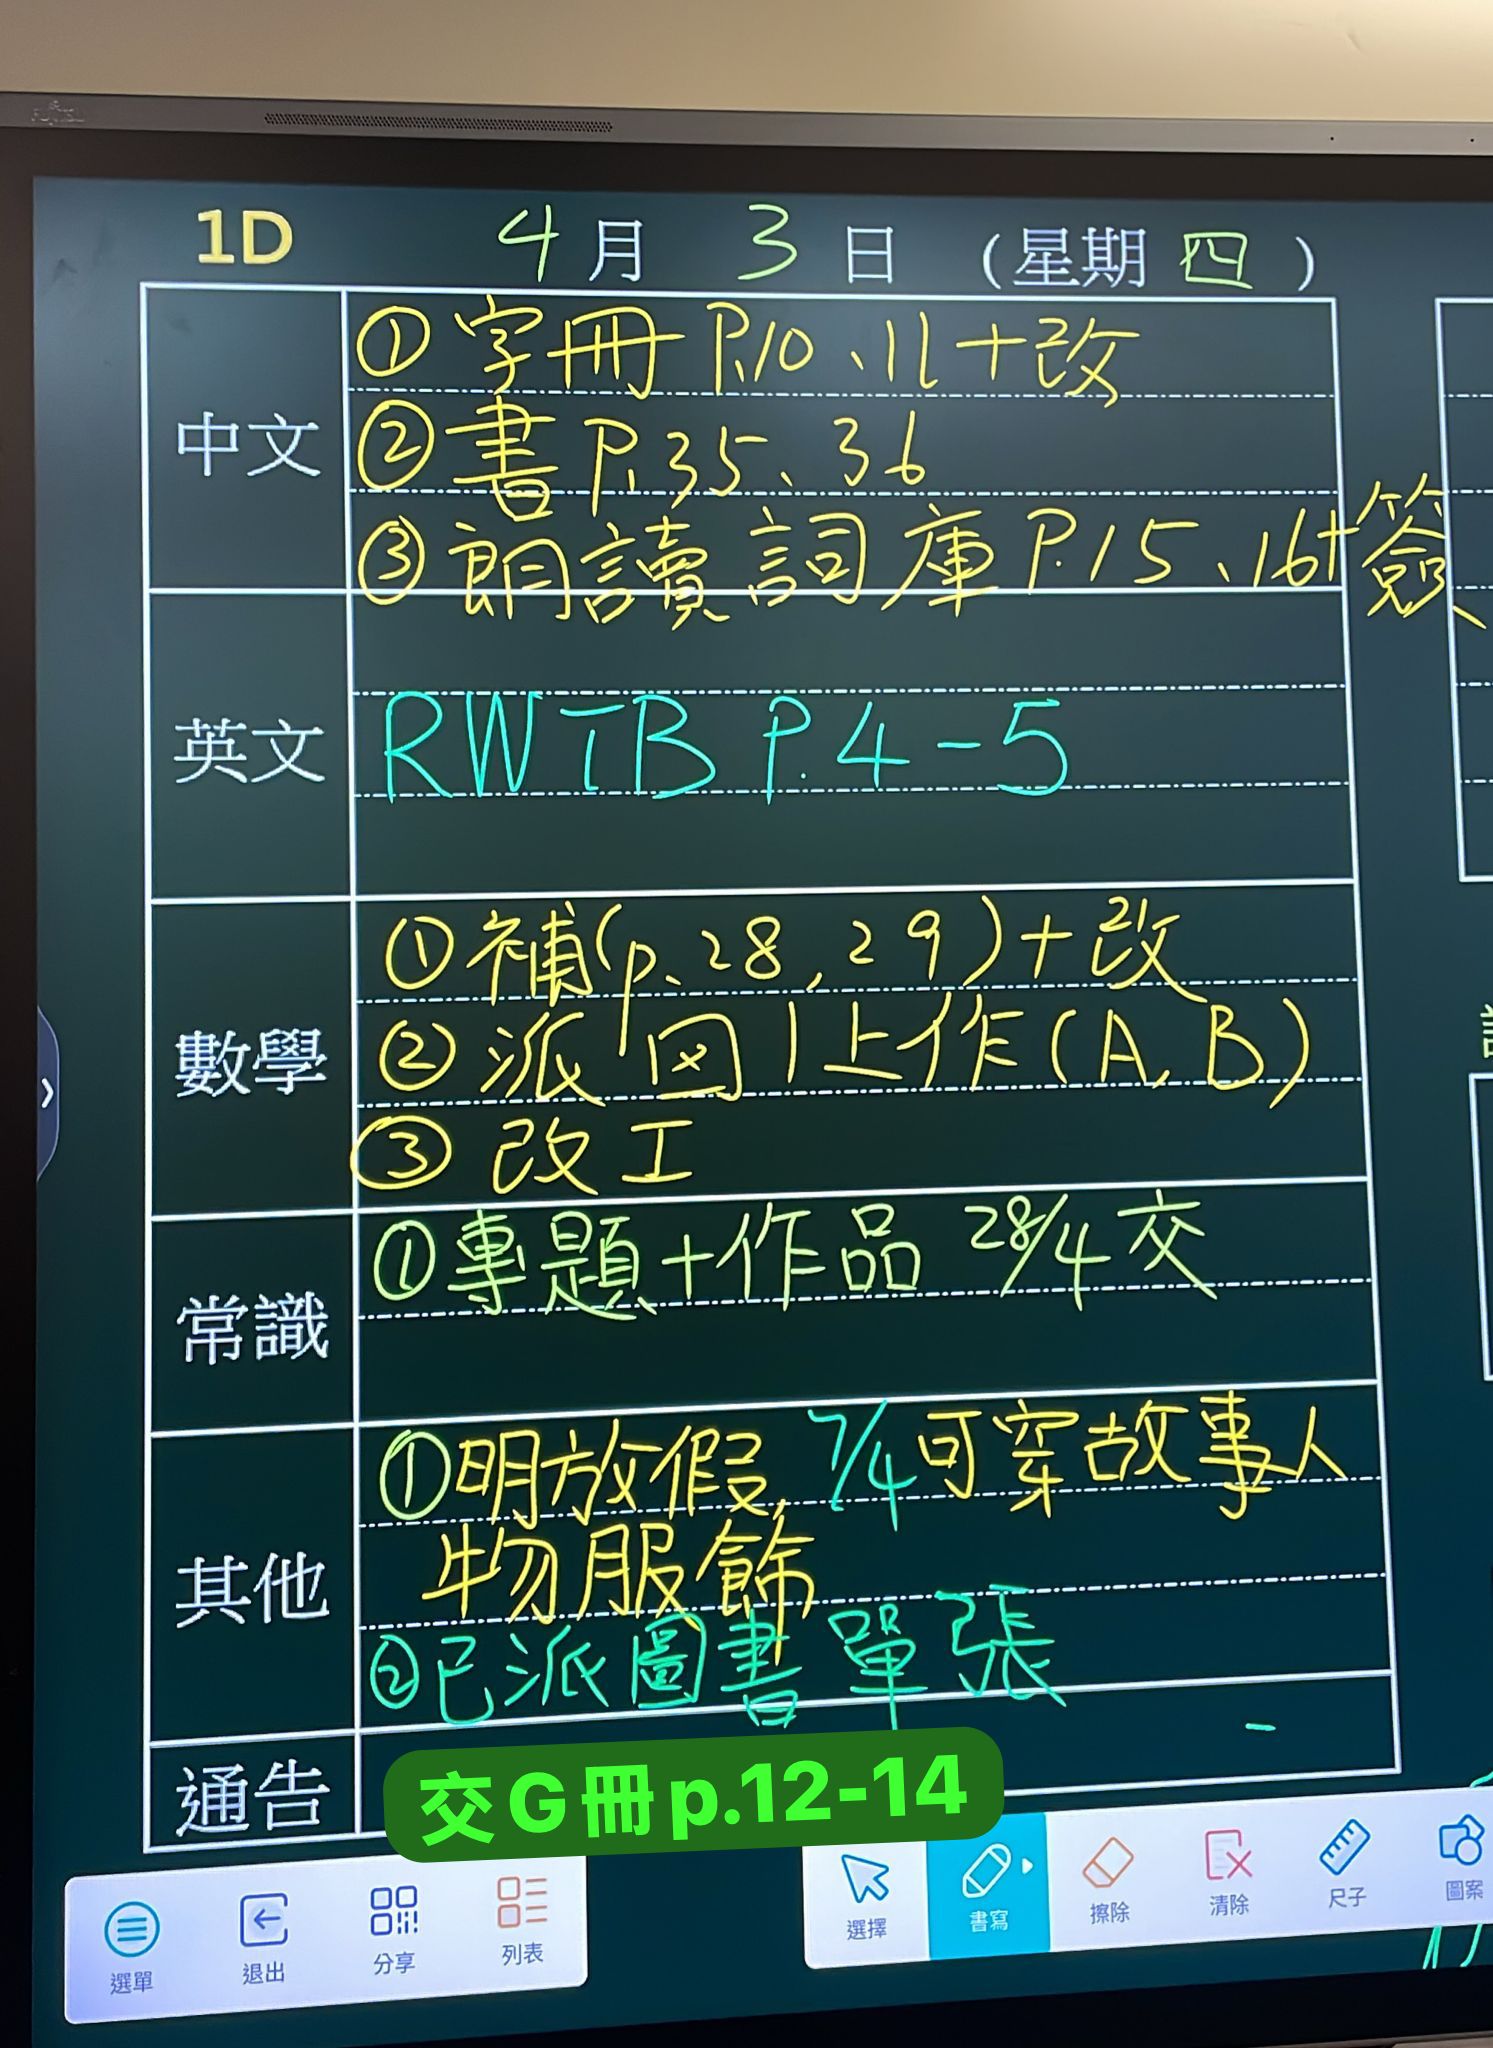 FUJITSU
1D 4月3日（星期四）
中文
①字冊 P.10、11+改
②書 P.35、36
③朗讀詞庫 P.15、16+簽
英文
RWTB P.4-5
數學
①補(p.28,29)+改
②派図1上作(A,B)
③改工
常識
①專題+作品 28/4交
其他
①明放假, 7/4可穿故事人
物服飾
②已派圖書單張
通告
交G冊p.12-14
選單
退出
分享
列表
選擇
書寫
擦除
清除
尺子
圖案